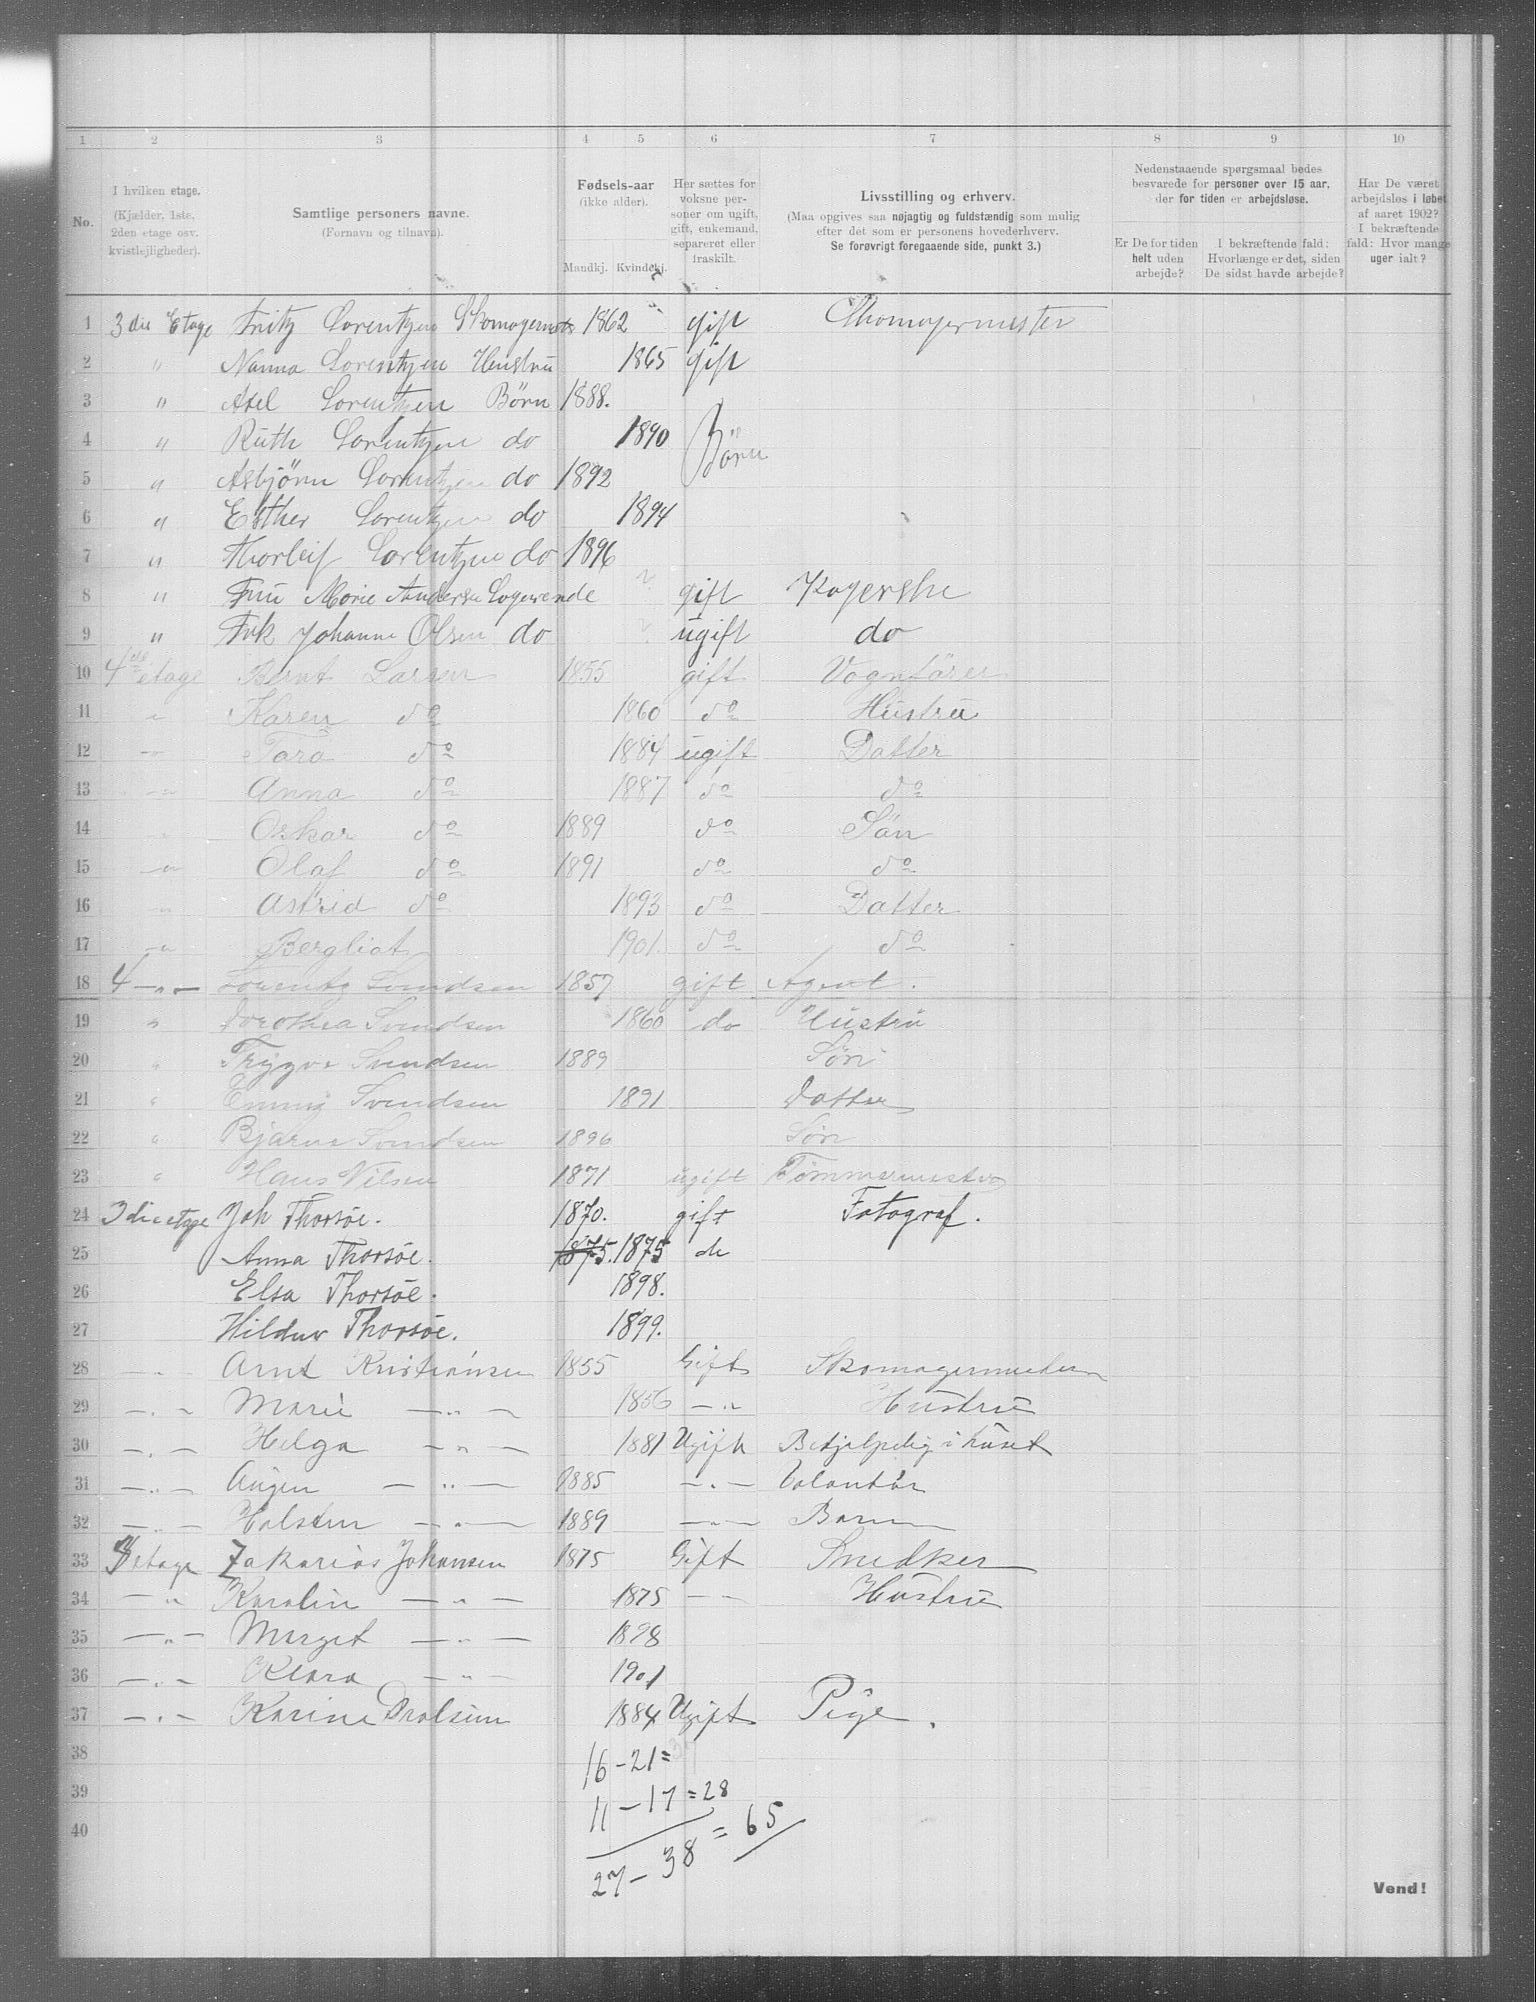 1 2 3 4 5 6 7 8 9 10
No. I hvilken etage. (Kjælder, 1ste, 2den etage osv. kvistlejligheder). Samtlige personers navne. (Fornavn og tilnavn). Fødsels-aar (ikke alder). Mandkj. Kvindekj. Her sættes for voksne personer om ugift, gift, enkemand, separeret eller fraskilt. Livsstilling og erhverv. (Maa opgives saa nøjagtig og fuldstændig som mulig efter det som er personens hovederhverv. Se forøvrigt foregaaende side, punkt 3.) Nedenstaaende spørgsmaal bedes besvarede for personer over 15 aar, der for tiden er arbejdsløse. Er De for tiden helt uden arbejde? I bekræftende fald: Hvorlænge er det, siden De sidst havde arbejde? Har De været arbejdsløs i løbet af aaret 1902? I bekræftende fald: Hvor mange uger ialt?
1 3die Etage Fritz Lorentzen 1862 gift Skomagermester
2 " Nanna Lorentzen Hustru 1865 gift
3 " Axel Lorentzen Børn 1888.
4 " Ruth Lorentzen do 1890 Børn
5 " Asbjörn Lorentzen do 1892
6 " Esther Lorentzen do 1894
7 " Thorleif Lorentzen do 1896
8 " Fru Marie Andersen Logerende ? gift Kogerske
9 " Frk Johanne Olsen do ? ugift do
10 4de etage Bernt Larsen 1855 gift Vognförer
11 " Karen do 1860 do Hustru
12 " Tara do 1884 ugift Datter
13 " Anna do 1887 do do
14 " Oskar do 1889 do Sön
15 " Olaf do 1891 do do
16 " Astrid do 1893 do Datter
17 " Bergliot 1901. do do
18 4 - " - Lorentz Svendsen 1857 gift Agent.
19 " Dorothea Svendsen 1860 do Hustru
20 " Trygve Svendsen 1889 Søn
21 " Emmy Svendsen 1891 Datter
22 " Bjarne Svendsen 1896 Søn
23 " Hans Nilsen 1871 ugift Tømmermester
24 3die etage Joh Thorsöe. 1870. gift Fotograf.
25 Anna Thorsöe. 1875. 1875 do
26 Elsa Thorsöe. 1898.
27 Hildur Thorsöe. 1899.
28 - " - Arnt Kristiansen 1855 Gift Skomagermester
29 - " - Marie - " - 1856 - " - Hustru
30 - " - Helga - " - 1881 Ugift Behjelpelig i huset
31 - " - - " - 1885 - " - Volontör
32 - " - Halsten - " - 1889 - " - Barn
33 3 etage Zakarias Johansen 1875 Gift Snedker
34 - " Karolin - " - 1875 - - Hustru
35 - " - Marget - " - 1898
36 - " - Klara - " - 1901
37 - " - Karine 1884 Ugift Pige.
38 16 - 21 = 37
39 11 - 17 = 28
40
27 - 38 = 65
Vend!